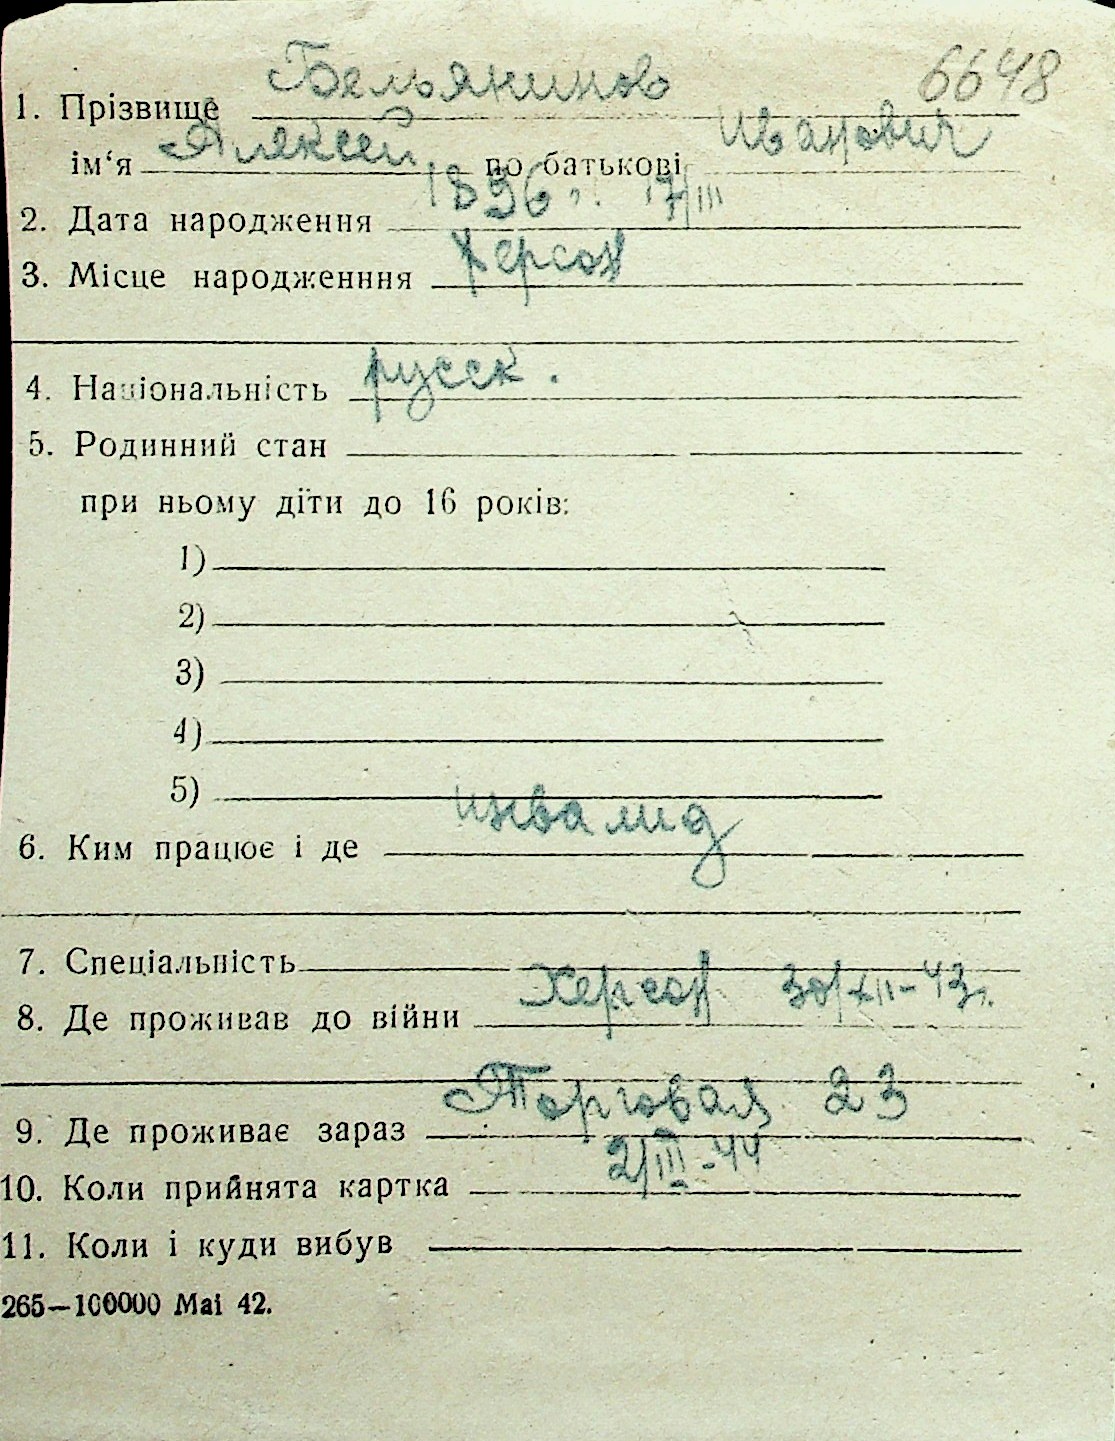 Бельянинов 6648
1. Прізвище
Алексей Иванович
ім‘я по батькові
1896 г. 17/III
2. Дата народження
Херсон
3. Місце народженння
4. Національність русск.
5. Родинний стан
при ньому діти до 16 років:
1)
2)
3)
4)
5)
инвалид
6. Ким працює і де
7. Спеціальність
Херсон 30/XII-43г.
8. Де проживав до війни
Торговая 23
9. Де проживає зараз
2/III-44
10. Коли прийнята картка
11. Коли і куди вибув
265—100000 Mai 42.